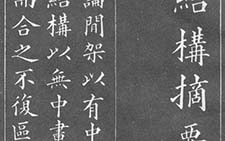 結構摘要
論閒架以有中
結構以無中畫
而合之不復區